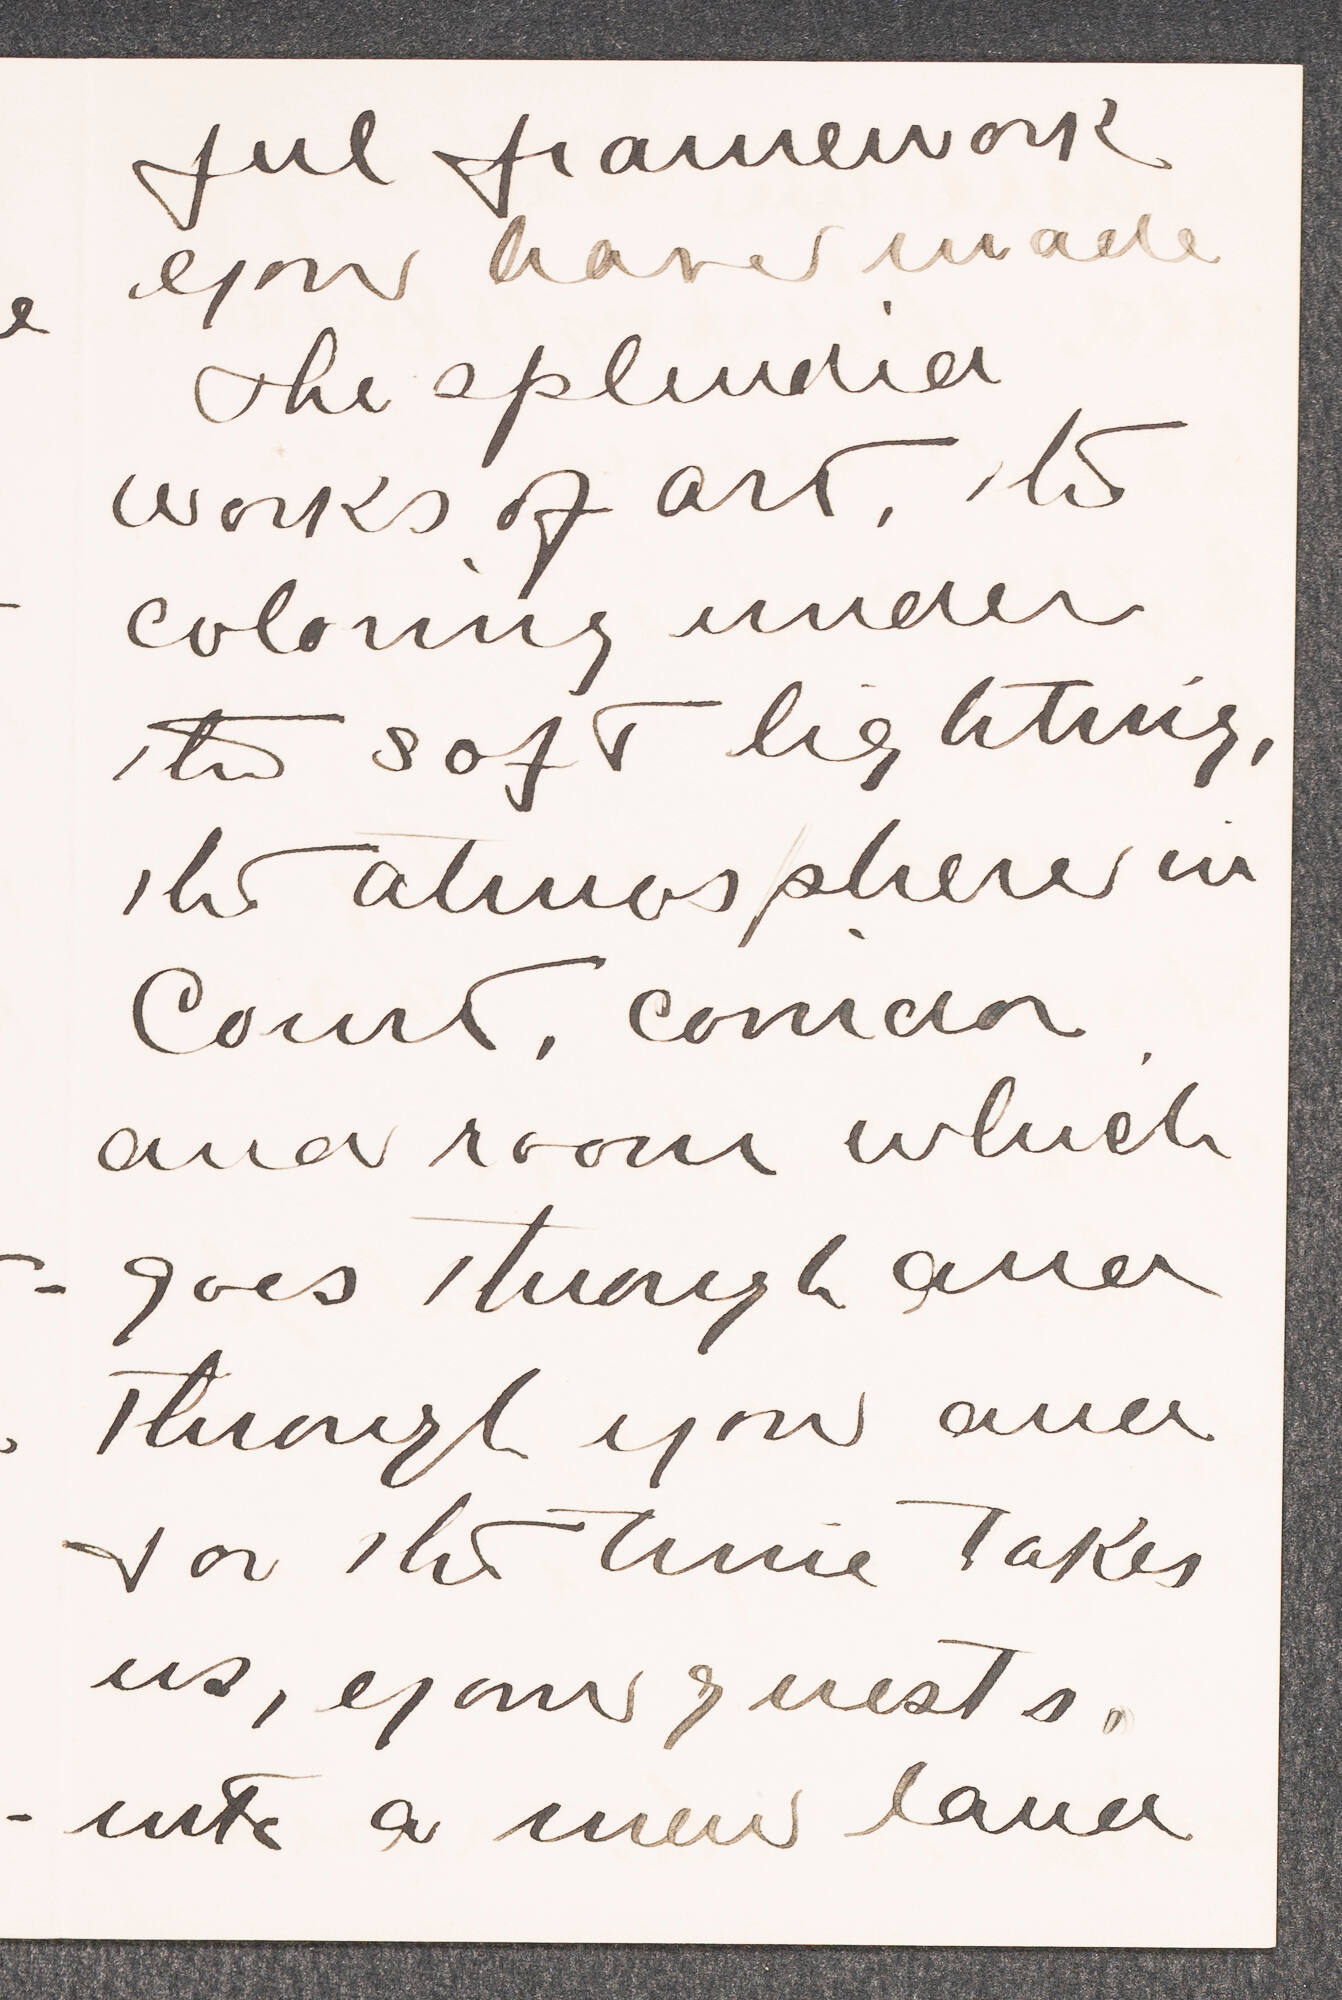 ful framework
you have made
the splendid
works of art, the
coloring under
the soft lighting,
the atmosphere in
Court, corridor
and room which
goes through and
through you and
for the time takes
us, your guests,
into a new land